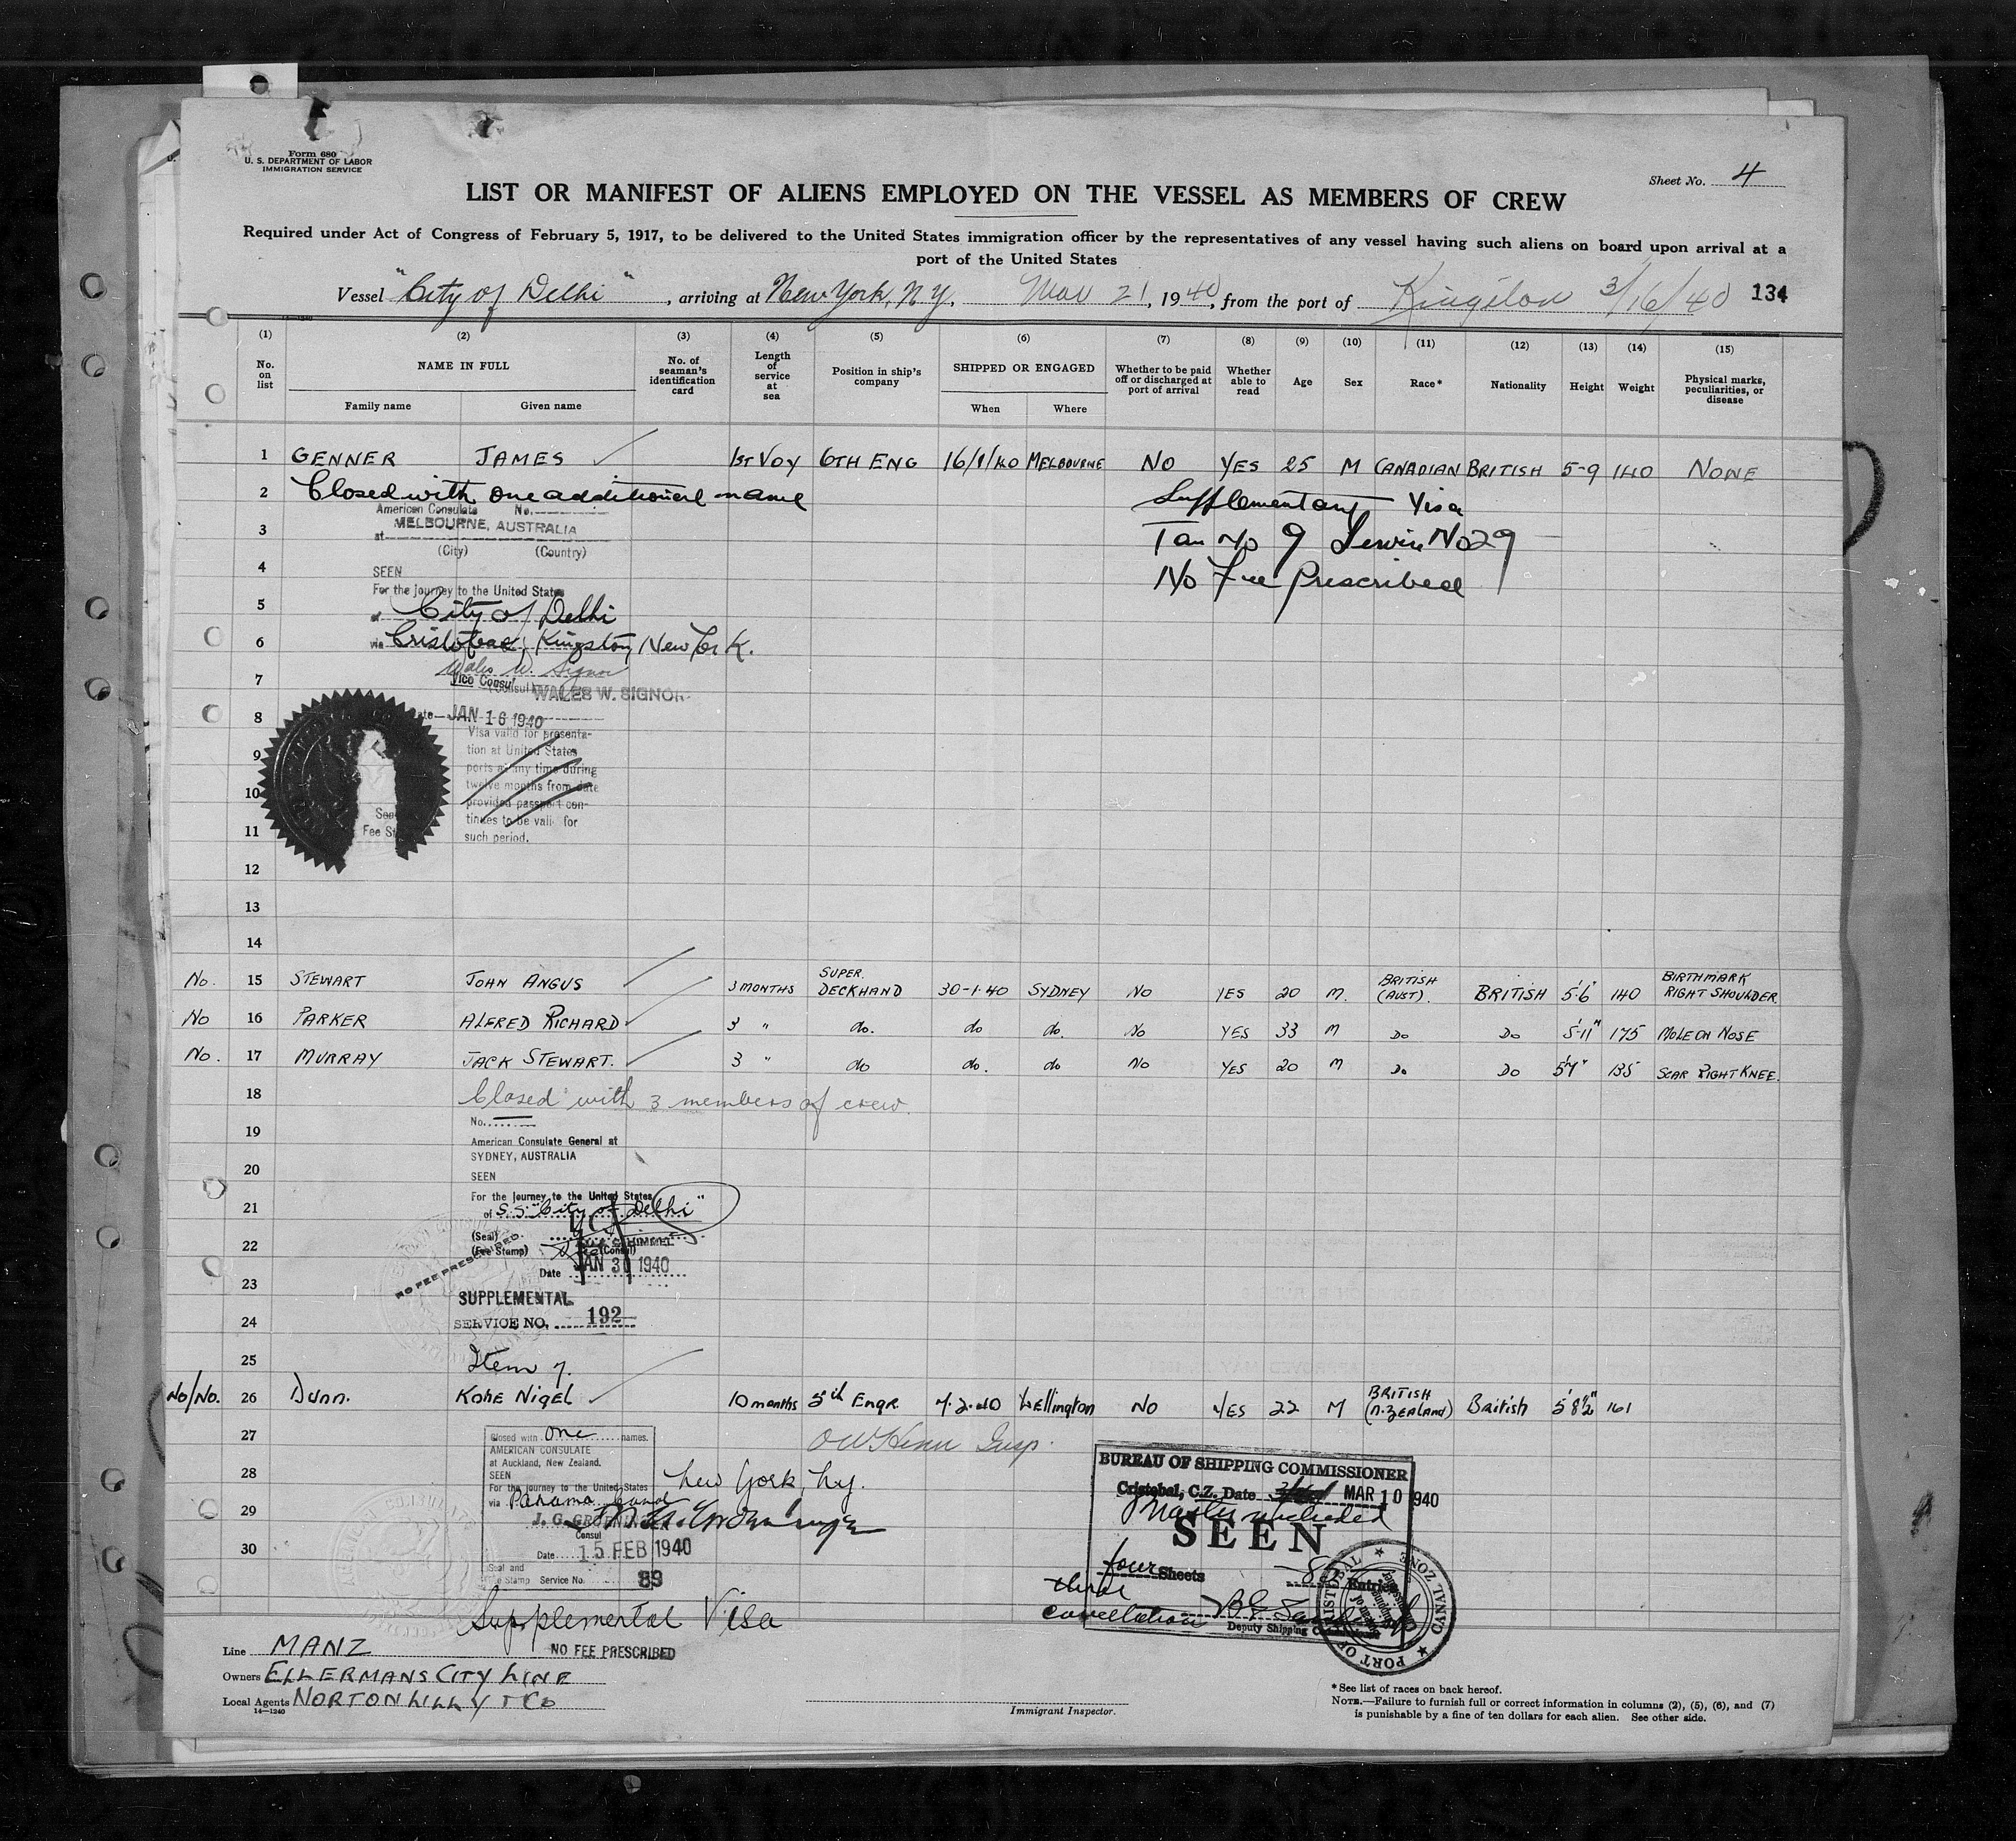 Form 680
U. S. DEPARTMENT OF LABOR
IMMIGRATION SERVICE
Sheet No. 4
LIST OR MANIFEST OF ALIENS EMPLOYED ON THE VESSEL AS MEMBERS OF CREW
Required under Act of Congress of February 5, 1917, to be delivered to the United States immigration officer by the representatives of any vessel having such aliens on board upon arrival at a
port of the United States
Vessel "City of Delhi", arriving at New York, N.Y., Mar 21, 1940, from the port of Kingston 3/16/40 134
(1) (2) (3) (4) (5) (6) (7) (8) (9) (10) (11) (12) (13) (14) (15)
No. on list NAME IN FULL No. of seaman's identification card Length of service at sea Position in ship's company SHIPPED OR ENGAGED Whether to be paid off or discharged at port of arrival Whether able to read Age Sex Race* Nationality Height Weight Physical marks, peculiarities, or disease
Family name Given name When Where
1 GENNER JAMES 1ST VOY 6TH ENG 16/1/40 MELBOURNE NO YES 25 M CANADIAN BRITISH 5-9 140 NONE
2 Closed with one additional name Supplementary Visa
American Consulate No.
3 at MELBOURNE, AUSTRALIA No 9 No 29
(City) (Country)
4 SEEN No Fee Prescribed
For the journey to the United States
5 of City of Delhi
6 via Cristobal, Kingston, New York.
Wales W. Signor
7 Vice Consul (Consul) WALES W. SIGNOR
8 Date JAN 16 1940
Visa valid for presenta-
9 tion at United States
ports at any time during
10 twelve months from date
provided passport con-
11 tinues to be valid for
such period.
Seal
Fee St
12
13
14
No. 15 STEWART JOHN ANGUS 3 MONTHS SUPER. DECKHAND 30-1-40 SYDNEY NO YES 20 M. BRITISH (AUST). BRITISH 5'6" 140 BIRTHMARK RIGHT SHOULDER
No 16 PARKER ALFRED RICHARD 3 " do. do do. No YES 33 M Do Do 5'11" 175 MOLE ON NOSE
No. 17 MURRAY JACK STEWART. 3 " do do. do No YES 20 M Do Do 5'7" 135 SCAR RIGHT KNEE.
18 Closed with 3 members of crew.
No.
19 American Consulate General at
SYDNEY, AUSTRALIA
20 SEEN
For the journey to the United States
21 of S.S. "City of Delhi"
(Seal)
22 (Fee Stamp) (Consul)
NO FEE PRESCRIBED.
23 Date JAN 30 1940
SUPPLEMENTAL
24 SERVICE NO. 192
25 Item 7.
No/No. 26 Dunn. KOHE NIGEL 10 months 5th Engr 7.2.40 Wellington NO YES 22 M BRITISH (N.ZEALAND) British 5'8½" 161
27 Closed with one names. Insp.
AMERICAN CONSULATE
at Auckland, New Zealand.
28 SEEN
For the journey to the United States New York, N.Y.
via Panama Canal
29 J. G. GROENINGER
Consul
30 Date 15 FEB 1940
Seal and
Fee Stamp Service No. 89
Supplemental Visa
NO FEE PRESCRIBED
BUREAU OF SHIPPING COMMISSIONER
Cristobal, C.Z. Date MAR 10 1940
Master included
SEEN
four Sheets Entries
three
cancellations
Deputy Shipping Commissioner
PORT OF CRISTOBAL ★ CANAL ZONE ★
Line MANZ
Owners ELLERMANS CITY LINE
Local Agents NORTON LILLY & CO
14—1240
Immigrant Inspector.
*See list of races on back hereof.
NOTE.—Failure to furnish full or correct information in columns (2), (5), (6), and (7)
is punishable by a fine of ten dollars for each alien. See other side.